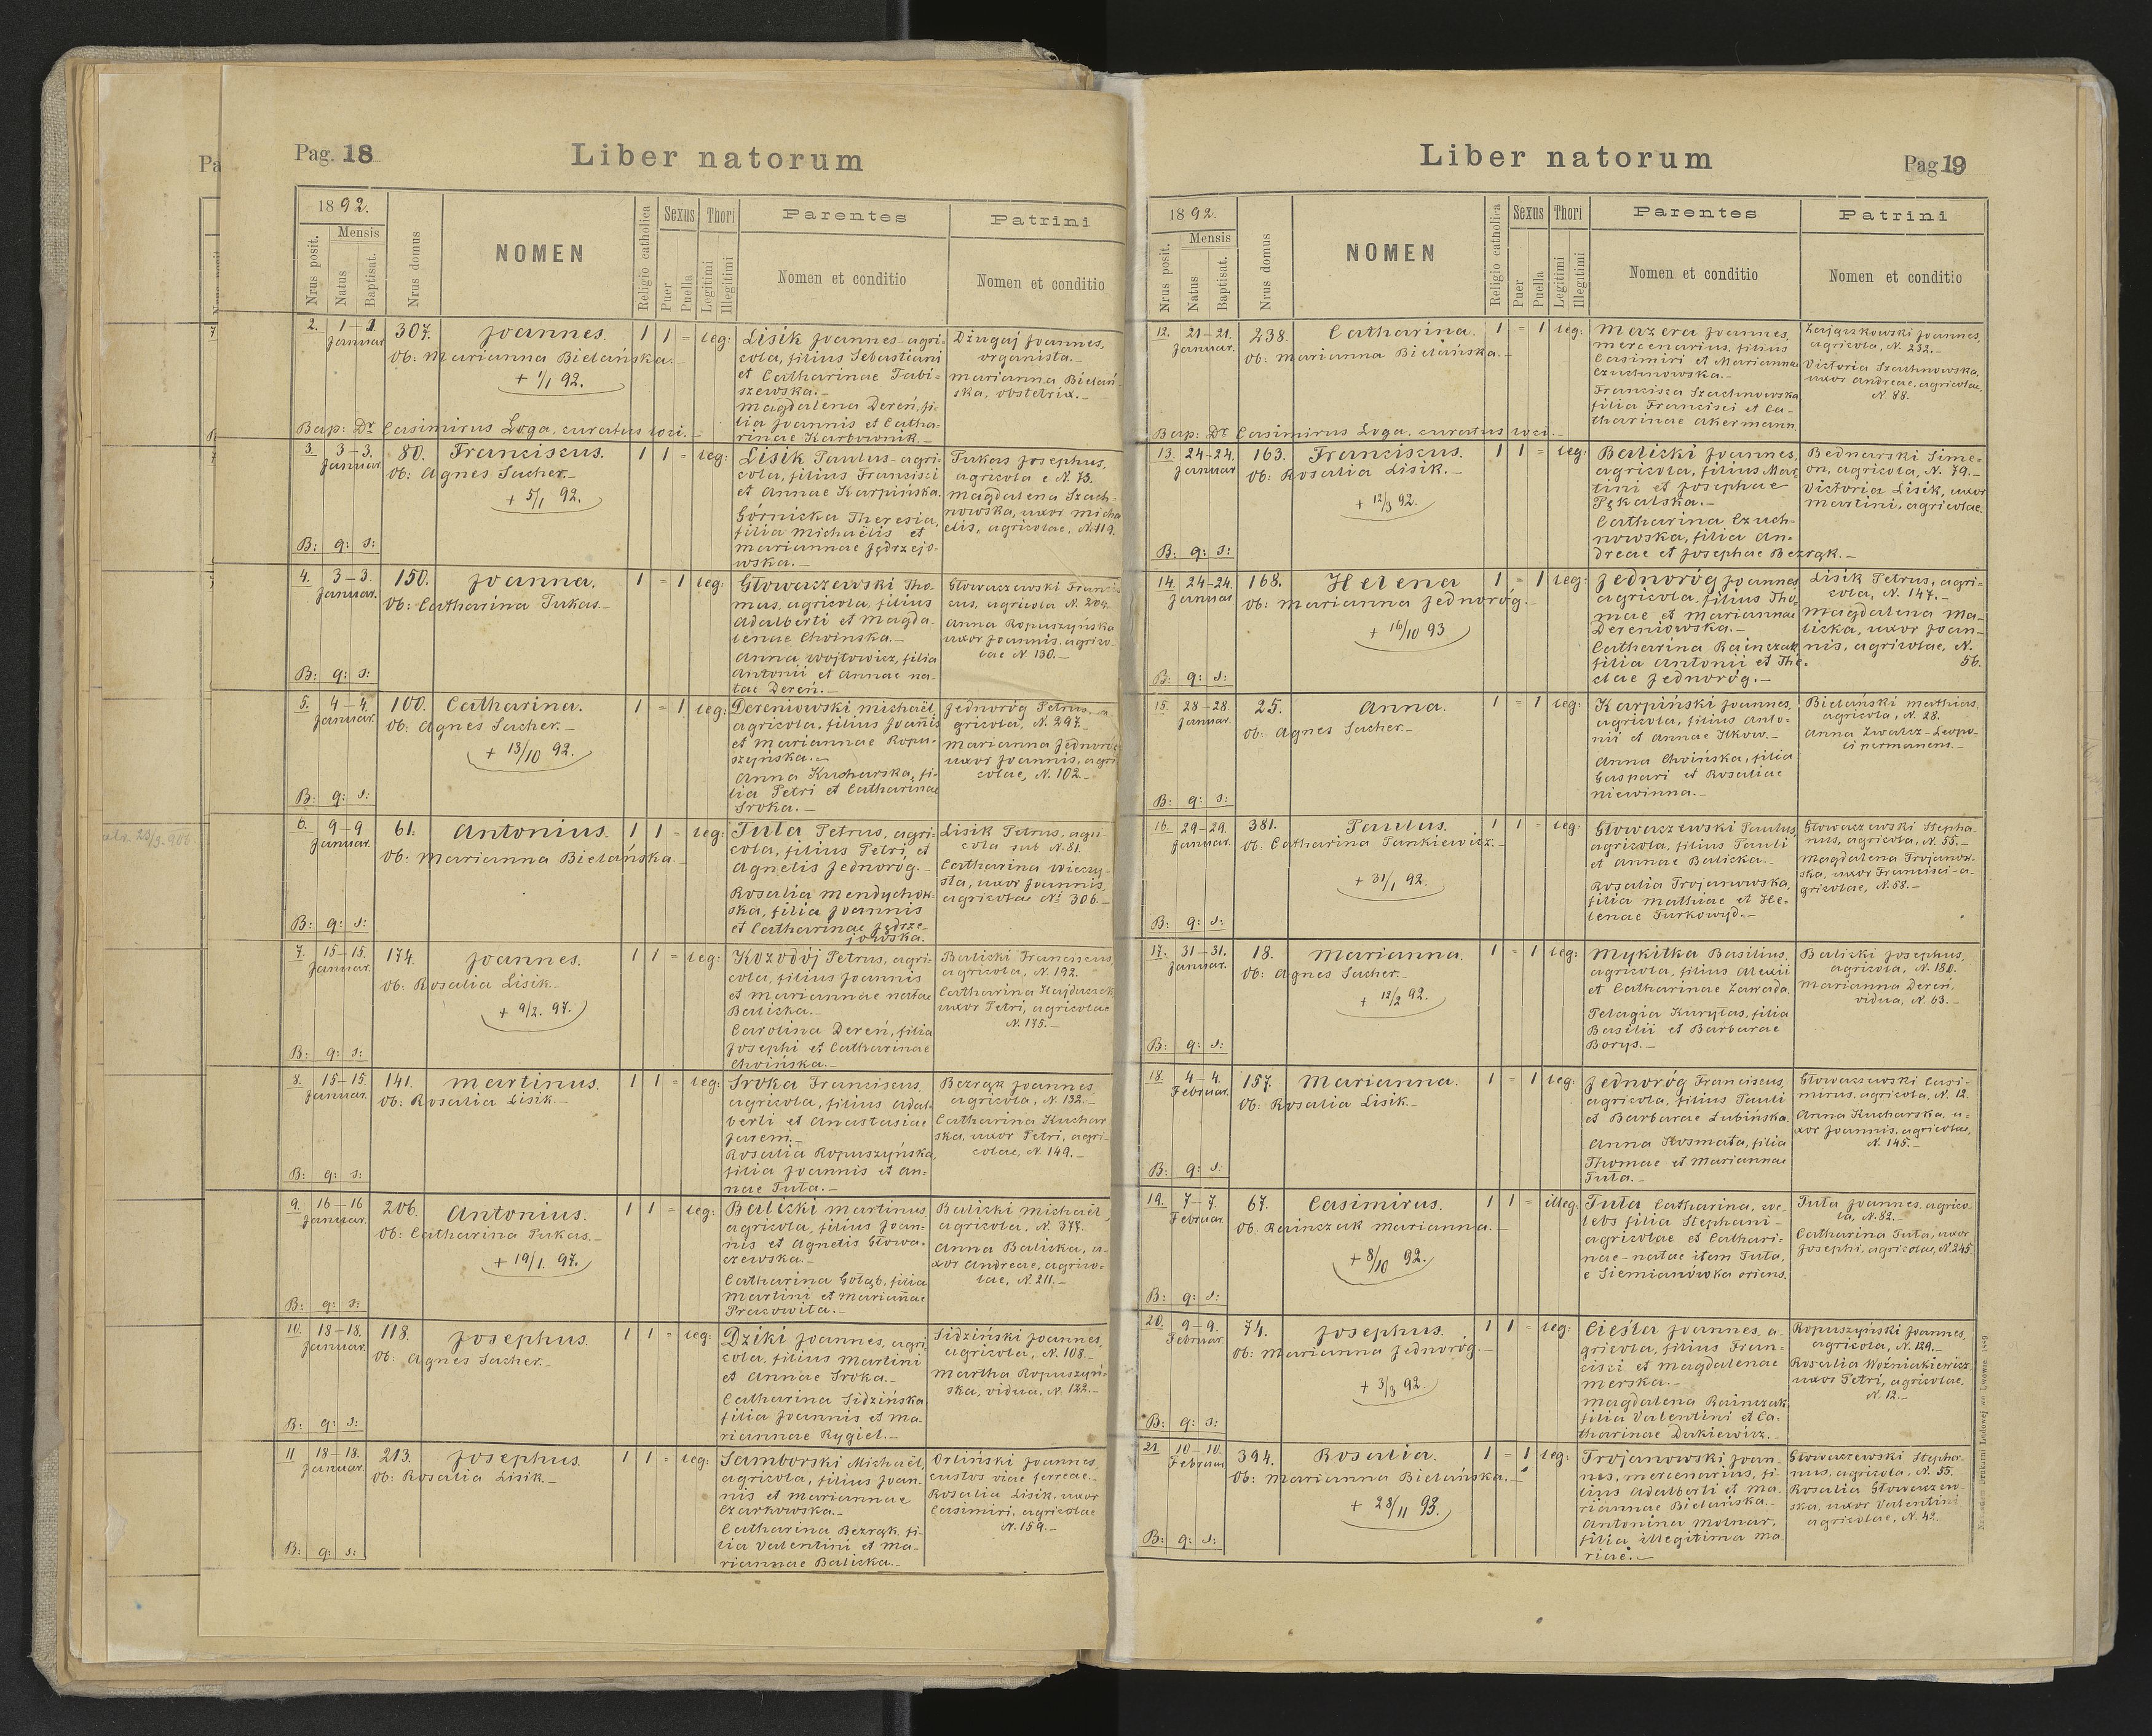 Pag. 18
Liber natorum
1892.
Mensis
Nrus posit.
Natus
Baptisat.
Nrus domus
NOMEN
Religio catholica
Sexus
Puer
Puella
Thori
Legitimi
Illegitimi
Parentes
Nomen et conditio
Patrini
Nomen et conditio
2. 1–1. Januar. 307. Joannes. 1 1 = leg:
Ob: Marianna Bielańska.–
+ 1/1 92.
Lisik Joannes–agri-
cola, filius Sebastiani
et Catharinae Tabi-
szewska.–
Magdalena Dereń, fi-
lia Joannis et Catha-
rinae Karbownik.–
Długaj Joannes,
organista.–
Marianna Bielań-
ska, obstetrix.–
Bap: Dr. Casimirus Loga, curatus loci.–
3. 3–3. Januar. 80. Franciscus. 1 1 = leg:
Ob: Agnes Sacher.–
+ 5/1 92.
Lisik Paulus–agri-
cola, filius Francisci
et Annae Karpińska.
Górnicka Theresia,
filia Michaëlis et
Mariannae Jędrzejo-
wska.–
Pukas Josephus,
agricola e N. 73.
Magdalena Szach-
nowska, uxor Micha
elis, agricolae, N. 119.
B: q: s:
4. 3–3. Januar. 150. Joanna. 1 = 1 leg:
Ob: Catharina Pukas.–
Głowaczewski Tho-
mas, agricola, filius
Adalberti et Magda-
lenae Chwinska.–
Anna Wojtowicz, filia
Antonii et Annae na-
tae Dereń.–
Głowaczewski Francis
cus, agricola N. 204.
Anna Ropuszyńska
uxor Joannis, agrico-
lae N. 130.–
B: q: s:
5. 4–4. Januar. 100. Catharina. 1 = 1 leg:
Ob: Agnes Sacher.–
+ 13/10 92.
Dereniowski Michaël,
agricola, filius Joannis
et Mariannae Ropu-
szyńska.–
Anna Kucharska, fi-
lia Petri et Catharinae
Sroka.–
Jednoróg Petrus–a
gricola, N. 297.
Marianna Jednoróg
uxor Joannis, agri
colae, N. 102.–
B: q: s:
6. 9–9 Januar. 61. Antonius. 1 1 = leg:
Ob: Marianna Bielańska.–
Tuta Petrus, agri-
cola, filius Petri et
Agnetis Jednoróg.–
Rosalia Mendychow-
ska, filia Joannis
et Catharinae Jędrze-
jowska.
Lisik Petrus, agri-
cola sub N. 81.
Catharina Wieczy-
sta, uxor Joannis,
agricolae No 306.–
B: q: s:
7. 15–15. Januar. 174. Joannes. 1 1 = leg:
Ob: Rosalia Lisik.–
+ 9/2. 97.
Kozodój Petrus, agri-
cola, filius Joannis
et Mariannae natae
Balicka.–
Carolina Dereń, filia
Josephi et Catharinae
Chwińska.–
Balicki Franciscus,
agricola, N. 192.
Catharina Hajdaczek
uxor Petri, agricolae
N. 175.–
B: q: s:
8. 15–15. Januar. 141. Martinus. 1 1 = leg:
Ob: Rosalia Lisik.–
Sroka Franciscus,
agricola, filius Adal-
berti et Anastasiae
Janem.–
Rosalia Ropuszyńska,
filia Joannis et An-
nae Tuta.–
Bezrąk Joannes
agricola, N. 132.–
Catharina Kuchar
ska, uxor Petri, agri-
colae, N. 149.–
B: q: s:
9. 16–16 Januar. 206. Antonius. 1 1 = leg:
Ob: Catharina Pukas.–
+ 19/1. 97.
Balicki Martinus,
agricola, filius Joan-
nis et Agnetis Głowa-
czewska.–
Catharina Gołąb, filia
Martini et Mariannae
Prakowita.–
Balicki Michaël,
agricola, N. 377.
Anna Balicka, u-
xor Andreae, agrico-
lae, N. 211.–
B: q: s:
10. 18–18. Januar. 118. Josephus. 1 1 = leg:
Ob: Agnes Sacher.–
Dziki Joannes, agri
cola, filius Martini
et Annae Sroka.–
Catharina Sidzińska
filia Joannis et Ma-
riannae Rygiel.–
Sidziński Joannes,
agricola, N. 108.–
Martha Ropuszyń-
ska, vidua, N. 122.–
B: q: s:
11 18–18. Januar. 213. Josephus. 1 1 = leg:
Ob: Rosalia Lisik.–
Samborski Michaël,
agricola, filius Joan-
nis et Mariannae
Czarkowska.–
Catharina Bezrąk, fi-
lia Valentini et Ma-
riannae Balicka.–
Orliński Joannes,
custos viae ferreae.–
Rosalia Lisik, uxor
Casimiri, agricolae
N. 159.–
B: q: s:
Liber natorum
Pag 19
1892.
Mensis
Nrus posit.
Natus
Baptisat.
Nrus domus
NOMEN
Religio catholica
Sexus
Puer
Puella
Thori
Legitimi
Illegitimi
Parentes
Nomen et conditio
Patrini
Nomen et conditio
12. 21–21. Januar. 238. Catharina. 1 = 1 leg:
Ob: Marianna Bielańska.–
Mazera Joannes,
mercenarius, filius
Casimiri et Mariannae
Czuchnowska.–
Francisca Szachnowska
filia Francisci et Ca-
tharinae Akermann.
Zajączkowski Joannes,
agricola, N. 232.–
Victoria Szachnowska,
uxor Andreae, agricolae,
N. 88.
Bap: Dr. Casimirus Loga, curatus loci.–
13. 24–24. Januar. 163. Franciscus. 1 1 = leg:
Ob: Rosalia Lisik.–
+ 12/3 92.
Balicki Joannes,
agricola, filius Mar-
tini et Josephae
Pękalska.–
Catharina Czuch-
nowska, filia An-
dreae et Josephae Bezrąk.–
Bednarski Sime-
on, agricola, N. 79.–
Victoria Lisik, uxor
Martini, agricolae.
B: q: s:
14. 24–24. Januar 168. Helena 1 = 1 leg:
Ob: Marianna Jednoróg.–
+ 16/10 93
Jednoróg Joannes
agricola, filius Tho-
mae et Mariannae
Dereniowska.–
Catharina Rainczak
filia Antonii et The-
clae Jednoróg.–
Lisik Petrus, agri-
cola, N. 147.–
Magdalena Ma-
licka, uxor Joan-
nis, agricolae, N.
56.
B: q: s:
15. 28–28. Januar. 25. Anna. 1 = 1 leg:
Ob: Agnes Sacher.–
Karpiński Joannes,
agricola, filius Anto-
nii et Annae Ilkow.–
Anna Chwińska, filia
Gaspari et Rosaliae
Niewinna.–
Bielański Mathias,
agricola, N. 28.
Anna Zwalcz–Leopo-
li permanens.–
B: q: s:
16. 29–29. Januar. 381. Paulus. 1 1 = leg:
Ob: Catharina Pankiewicz.–
+ 31/1 92.
Głowaczewski Paulus,
agricola, filius Pauli
et Annae Balicka.–
Rosalia Trojanowska,
filia Mathiae et He-
lenae Turkowyd.–
Głowaczewski Stepha-
nus, agricola, N. 55.–
Magdalena Trojanow-
ska, uxor Francisci–a-
gricolae, N. 58.–
B: q: s:
17. 31–31. Januar. 18. Marianna. 1 = 1 leg:
Ob: Agnes Sacher.–
+ 12/2 92.
Mykitka Basilius,
agricola, filius Alexii
et Catharinae Zawada.
Pelagia Kurylas, filia
Basilii et Barbarae
Borys.–
Balicki Josephus,
agricola, N. 180.
Marianna Dereń,
vidua, N. 63.–
B: q: s:
18. 4–4. Februar. 157. Marianna. 1 = 1 leg:
Ob: Rosalia Lisik.–
Jednoróg Franciscus,
agricola, filius Pauli
et Barbarae Lubińska.
Anna Kosmata, filia
Thomae et Mariannae
Tuta.–
Głowaczewski Casi-
mirus, agricola, N. 12.
Anna Kucharska, u-
xor Joannis, agricolae,
N. 145.–
B: q: s:
19. 7–7. Februar. 67. Casimirus. 1 1 = illeg:
Ob. Rainczak Marianna.–
+ 8/10 92.
Tuta Catharina, coe-
lebs filia Stephani–
agricolae et Cathari-
nae–natae item Tuta,
e Siemianówka oriens.
Tuta Joannes, agrico-
la, N. 82.–
Catharina Tuta, uxor
Josephi, agricolae, N. 245.
B: q: s:
20. 9–9. Februar. 74. Josephus. 1 1 = leg:
Ob: Marianna Jednoróg.–
+ 3/3 92.
Cieśla Joannes, a-
gricola, filius Fran-
cisci et Magdalenae
Merska.–
Magdalena Rainczak,
filia Valentini et Ca-
tharinae Dukiewicz.–
Ropuszyński Joannes,
agricola, N. 129.–
Rosalia Woźniakiewicz,
uxor Petri, agricolae,
N. 12.–
B: q: s:
21. 10–10. Februar 394. Rosalia. 1 = 1 leg:
Ob: Marianna Bielańska.–
+ 28/11 93.
Trojanowski Joan-
nes, mercenarius, fi-
lius Adalberti et Ma-
riannae Bielańska.–
Antonina Molnar,
filia illegitima Ma
riae.–
Głowaczewski Stepha-
nus, agricola, N. 55.
Rosalia Głowaczew-
ska, uxor Valentini
agricolae, N. 42.
B: q: s: